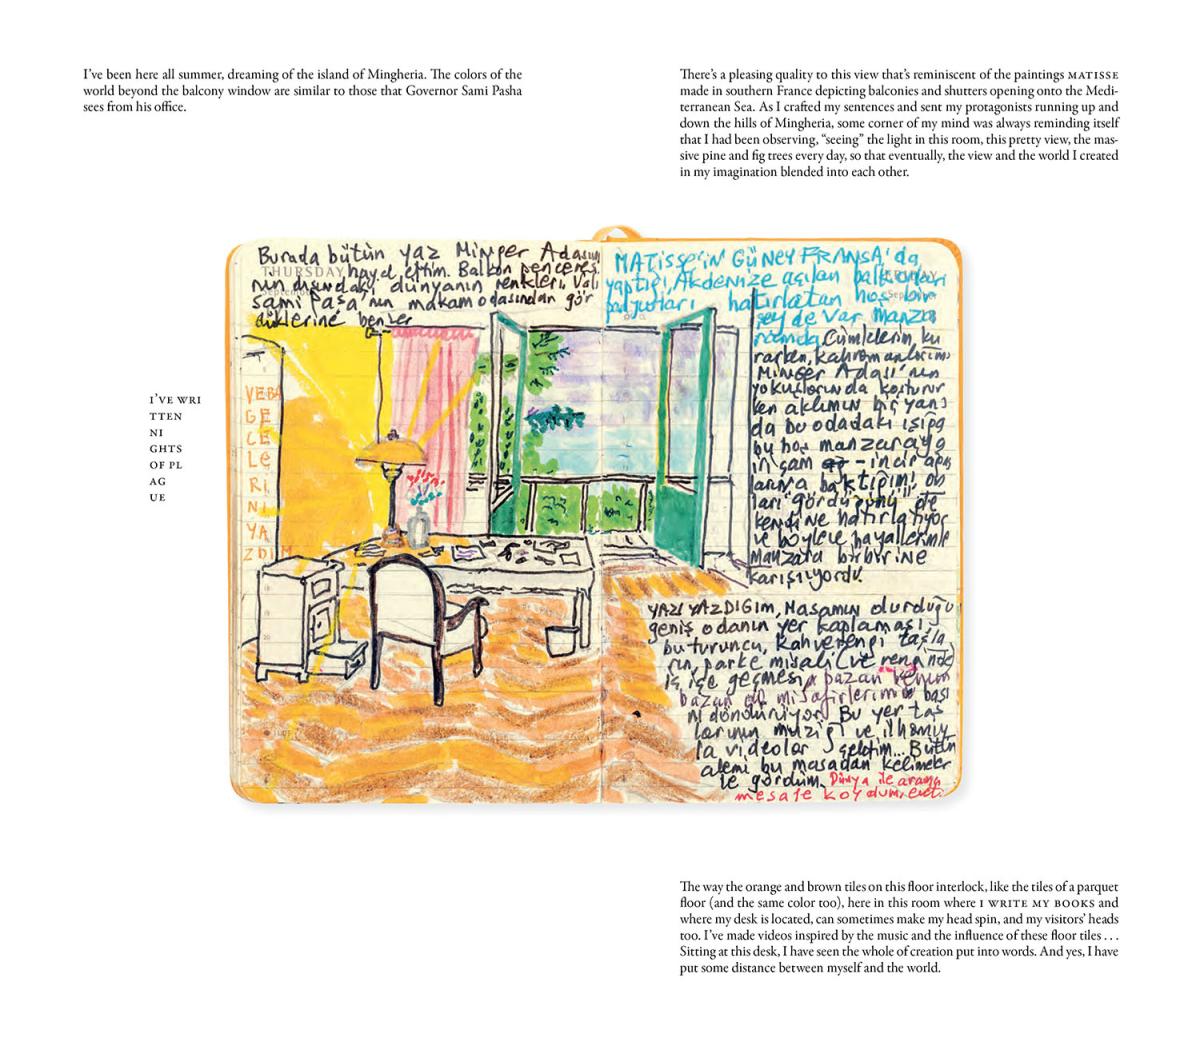 I’ve been here all summer, dreaming of the island of Mingheria. The colors of the
world beyond the balcony window are similar to those that Governor Sami Pasha
sees from his office.
There’s a pleasing quality to this view that’s reminiscent of the paintings MATISSE
made in southern France depicting balconies and shutters opening onto the Medi-
terranean Sea. As I crafted my sentences and sent my protagonists running up and
down the hills of Mingheria, some corner of my mind was always reminding itself
that I had been observing, “seeing” the light in this room, this pretty view, the mas-
sive pine and fig trees every day, so that eventually, the view and the world I created
in my imagination blended into each other.
Burada bütün yaz Minger Adasını
THURSDAY
hayal ettim. Balkon penceresi
nin dışındaki dünyanın renkleri, Vali
Sami Paşa'nın makam odasından gör
düklerine benzer
MATisse'in GÜNEY FRANSA'da
yaptığı, Akdenize açılan balkonları
panjurları hatırlatan hoş bir
şey de var manza
ramda. Cümlelerim, ku
rarken, kahramanlarımı
Minger Adası'nın
yokuşlarında koşturur
ken aklımın bir yanı
da bu odadaki ışığı
bu hoş manzarayı
iri çam - incir ağaç
larına baktığımı on
ları "gördüğümü" de
kendine hatırlatıyor
ve böylece hayallerimle
manzara birbirine
karışıyordu.
I’VE WRI
TTEN
NI
GHTS
OF PL
AG
UE
VEBA
GE
CE
LE
Rİ
Nİ
YA
ZDIM
YAZI YAZDIĞIM, Masamın durduğu
geniş odanın yer kaplaması,
bu turuncu, kahverengi taşla
rın, parke misali (ve renginde)
iç içe geçmesi, bazan benim
bazan da misafirlerimin başı
nı döndürüyor. Bu yer taş
larının müziği ve ilhamıy
la videolar çektim... Bütün
alemi bu masadan kelimeler
le gördüm. Dünya ile arama
mesafe koydum, evet.
The way the orange and brown tiles on this floor interlock, like the tiles of a parquet
floor (and the same color too), here in this room where I WRITE MY BOOKS and
where my desk is located, can sometimes make my head spin, and my visitors’ heads
too. I’ve made videos inspired by the music and the influence of these floor tiles . . .
Sitting at this desk, I have seen the whole of creation put into words. And yes, I have
put some distance between myself and the world.